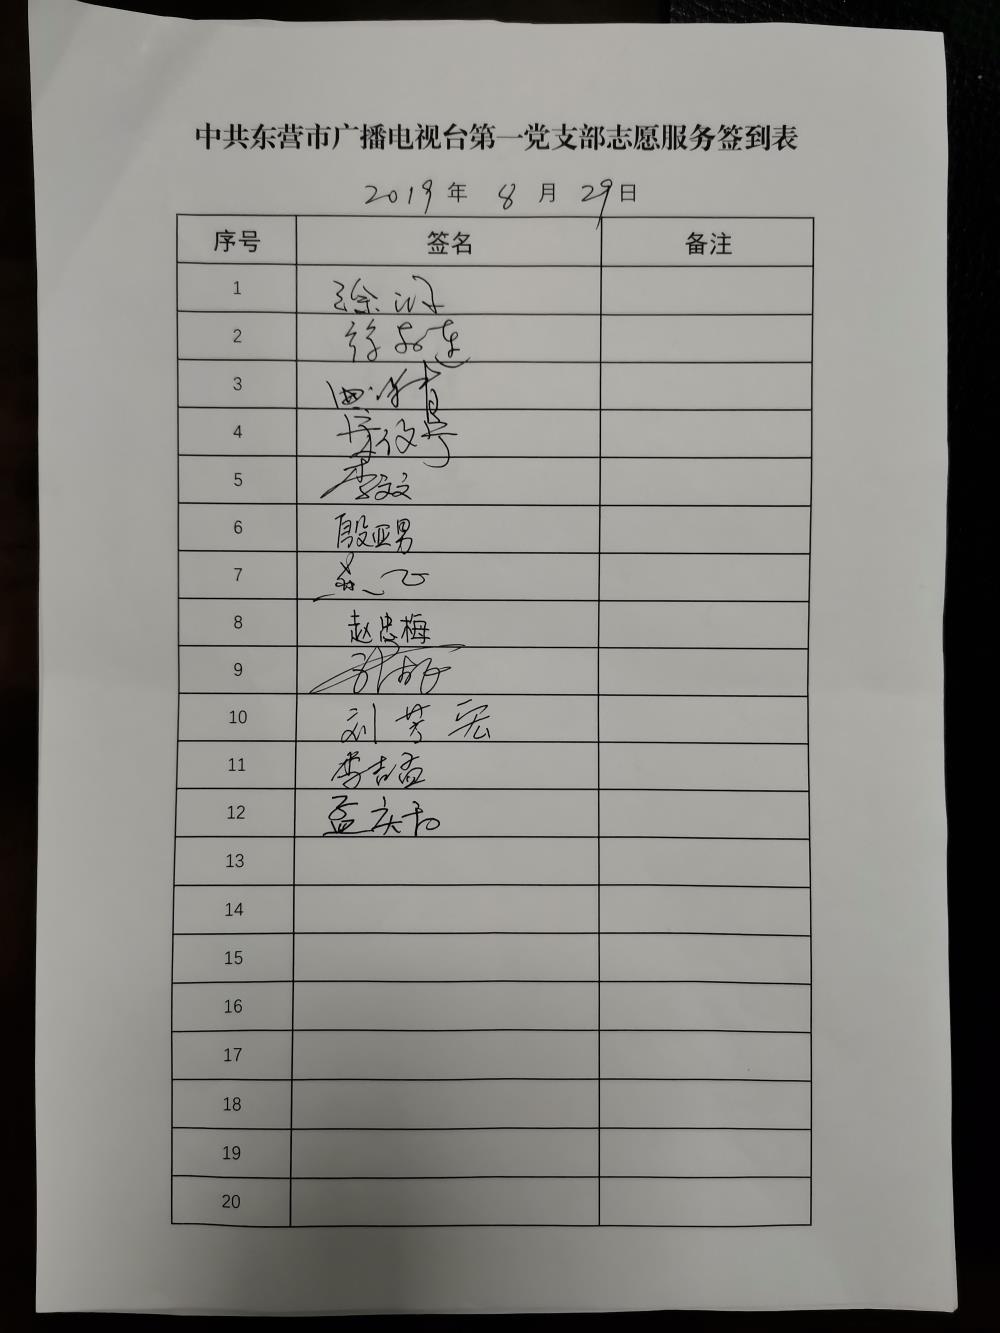 中共东营市广播电视台第一党支部志愿服务签到表
2019年 8月 29日
序号 签名 备注
1 徐
2 徐
3
4
5 李文文
6 殷亚男
7
8 赵忠梅
9
10 刘芳宏
11 李吉孟
12 孟庆和
13
14
15
16
17
18
19
20